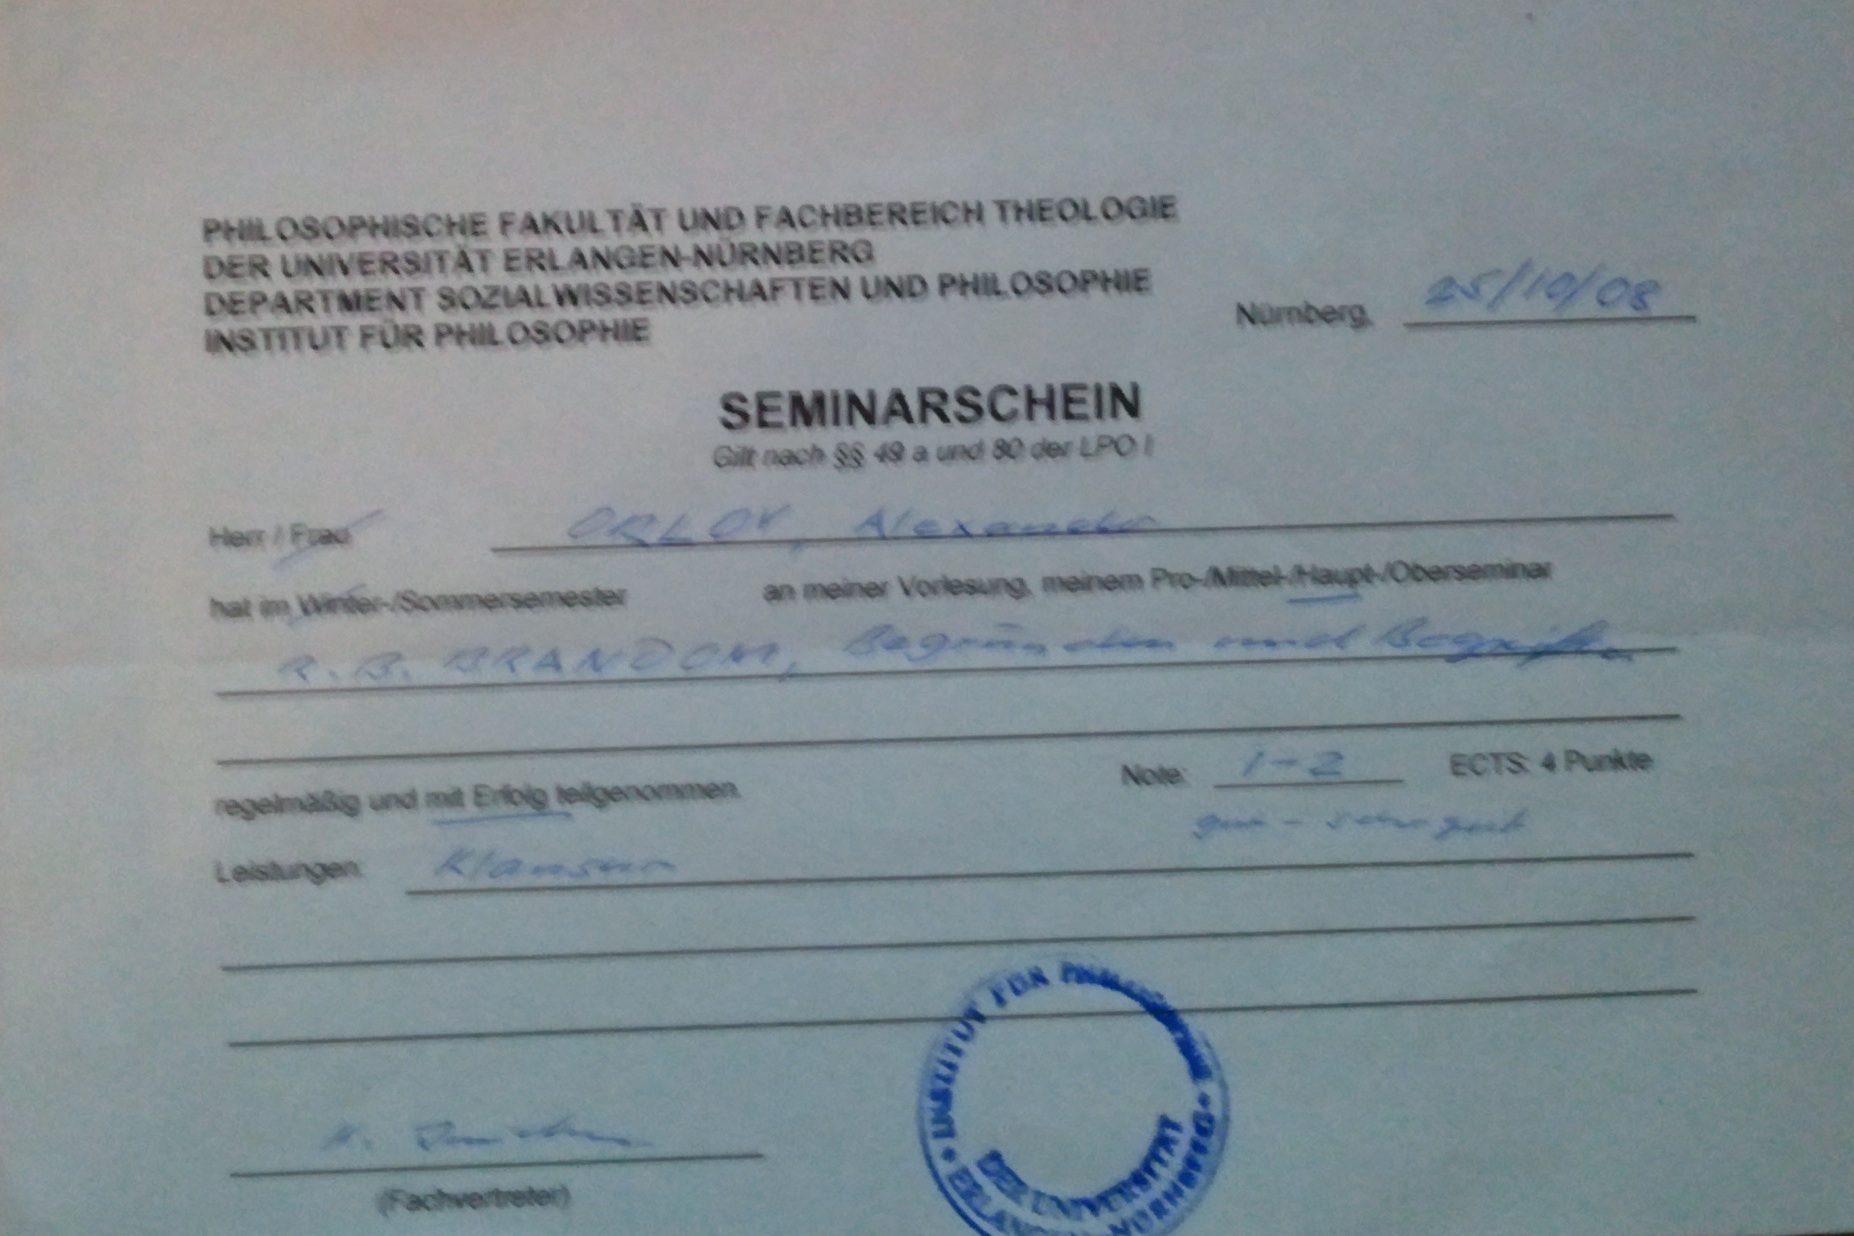 PHILOSOPHISCHE FAKULTÄT UND FACHBEREICH THEOLOGIE
DER UNIVERSITÄT ERLANGEN-NÜRNBERG
DEPARTMENT SOZIALWISSENSCHAFTEN UND PHILOSOPHIE
INSTITUT FÜR PHILOSOPHIE
Nürnberg, 25/10/08
SEMINARSCHEIN
Gilt nach §§ 49 a und 80 der LPO I
Herr / Frau ORLOV, Alexander
hat im Winter-/Sommersemester an meiner Vorlesung, meinem Pro-/Mittel-/Haupt-/Oberseminar
R. B. BRANDOM, Begründen und Begreifen
regelmäßig und mit Erfolg teilgenommen. Note: 1-2 ECTS: 4 Punkte
gut - sehr gut
Leistungen: Klausur
(Fachvertreter)
INSTITUT FÜR PHILOSOPHIE
DER UNIVERSITÄT
ERLANGEN-NÜRNBERG